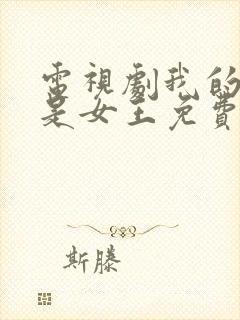 電視劇我的
是女王免費
斯滕